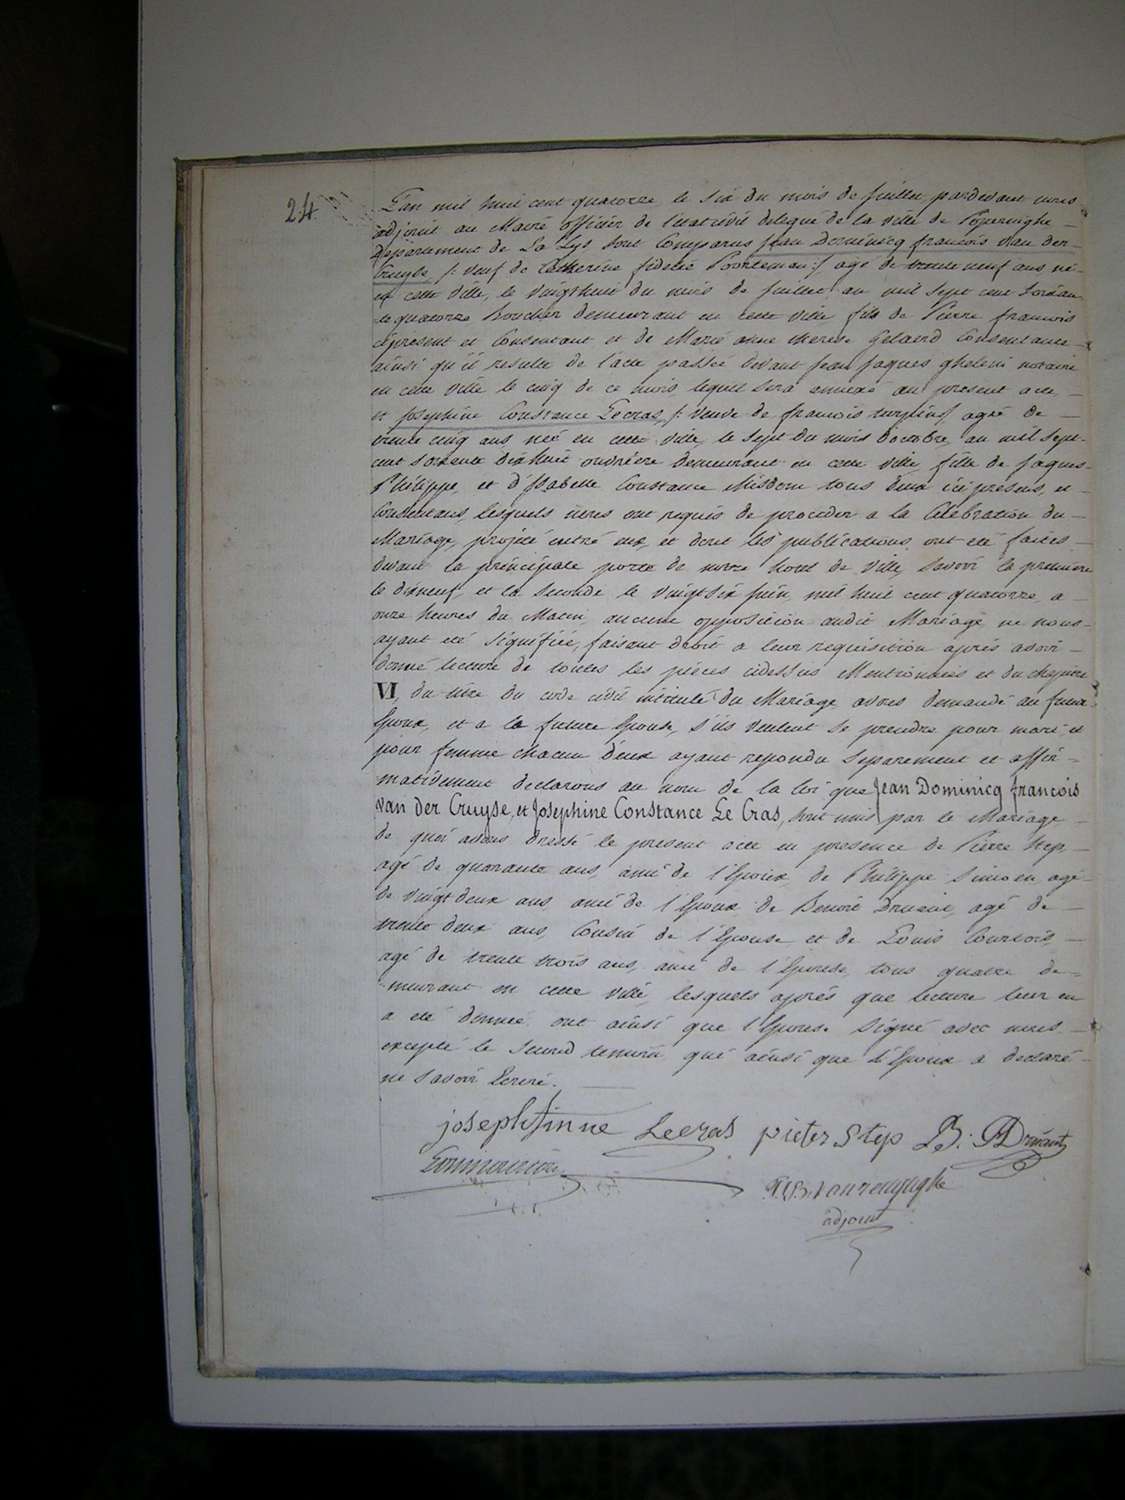 24
L'an mil huit cent quatorze le six du mois de juillet pardevant nous
adjoint au Maire officier de l'etat civil delegué de la ville de Poperinghe
departement de La Lys sont Comparus Jean Dominicq francois van der
Cruyse, /: veuf de Catherine fidelée Poorteman :/ agé de trente neuf ans né
en cette ville, le vingt huit du mois de juillet au mil sept cent soixan
te quatorze Boucher demeurant en cette ville fils de Pierre francois
ci present et Consentant et de Marie anne therese Gelaerd Consentante
ainsi qu'il resulte de l'acte passée devant jean jaques notaire
en cette ville le cinq de ce mois lequel sera annexé au present acte,
et josephine Constance Lecras, /: veuve de francois :/ agée de
trente cinq ans née en cette ville, le sept du mois doctobre, au mil sept
cent soixante dix huit ouvriere demeurant en cette ville fille de jaques
Philippe et d'Isabelle Constance Misdom tous deux ici presens, et
Consentans, lesquels nous ont requis de proceder a la Celebration du
Mariage, projeté entré eux, et dont les publications ont eté faites
devant la principale porte de notre hotel de ville, savoir la premiere
le dixneuf, et la seconde le vingt six juin, mil huit cent quatorze, a
onze heures du Matin, aucune opposition audit Mariage ne nous
ayant eté signifiée, faisant droit a leur requisition aprés avoir
donné lecture de toutes les piéces cidessus Mentionnées et du chapitre
VI, du titre du code civil intitulé du Mariage avons demandé au futur
Epoux, et a la future Epouse, s'ils veulent se prendre pour mari et
pour femme chacun d'eux ayant repondu separement et affir
mativement declarons au nom de la loi que Jean Dominicq francois
van der Cruyse, et Josephine Constance Le Cras, sont unis par le Mariage
de quoi avons dressé le present acte en presence de Pierre Step
agé de quarante ans, ami de l'Epoux, de Philippe Simoen, agé
de vingt deux ans ami de l'Epoux de Benoit Druant, agé de
trente deux ans, Cousin de l'Epouse, et de Louis Courtois,
agé de trente trois ans, ami de l'Epouse, tous quatre de
meurant en cette ville, lesquels aprés que lecture leur en
a eté donnée ont ainsi que l'Epouse signé avec nous
excepté le second temoin qui ainsi que l'Epoux a declaré
ne savoir Ecrire.
josephinne Lecras pieter Step B: Druant
adjoint